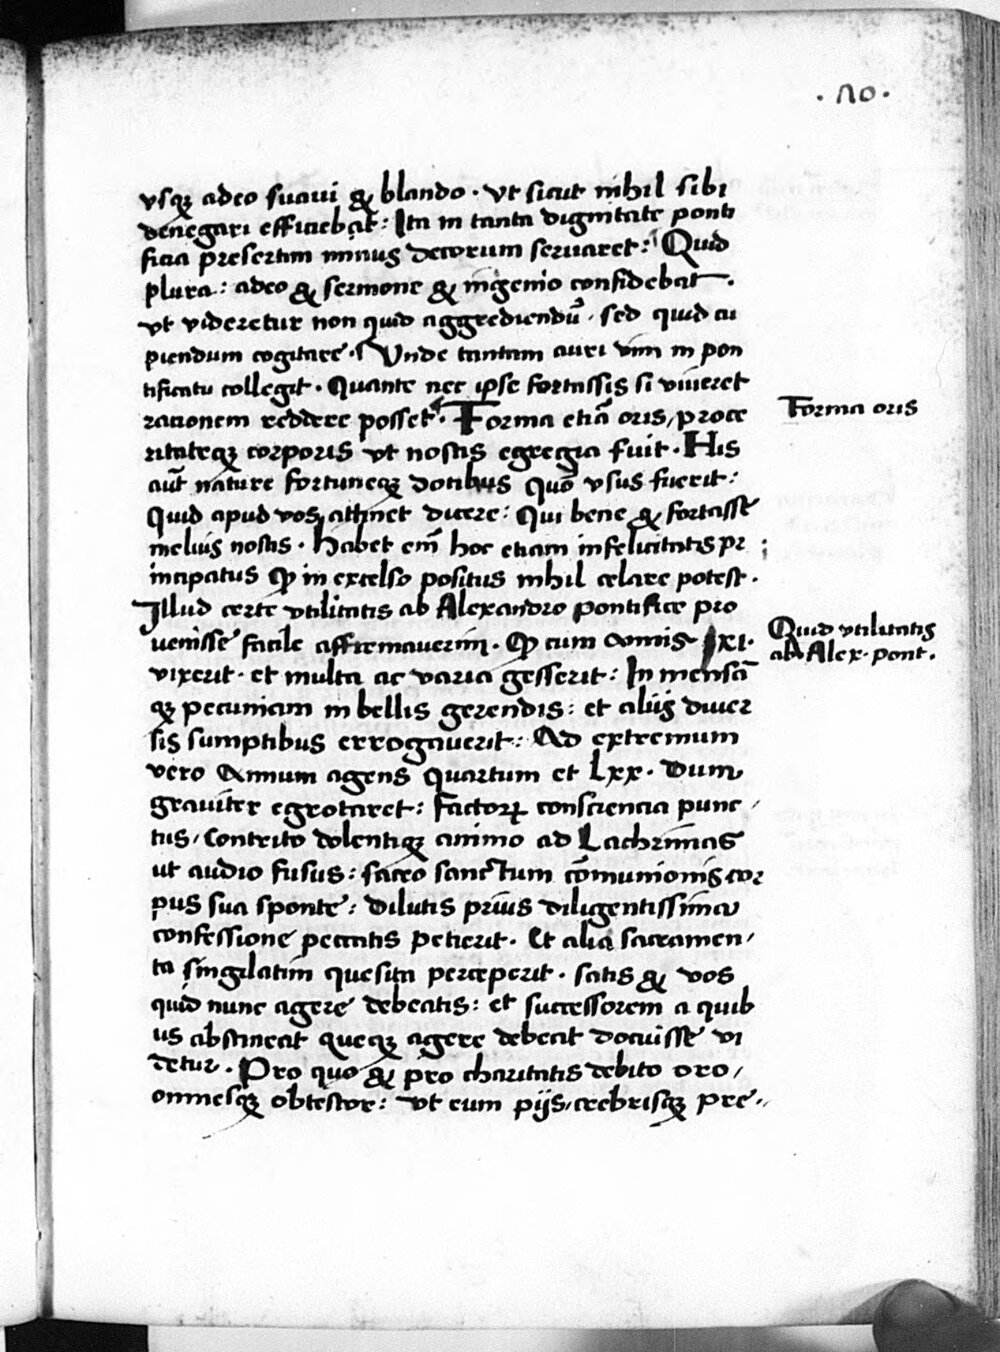 · ΛO ·
vsqꝫ adeo suaui & blando · vt sicut nihil sibi
denegari efficiebat: Ita in tanta dignitate ponti
ficia presertim minus decorum seruaret: Quid
plura: adeo & sermone & ingenio confidebat ·
vt videretur non quid aggrediendū · sed quid cu
piendum cogitare · Unde tantam auri vim in pon
tificatu collegit · Quante nec ipse fortassis si viueret
rationem reddere posset · Forma etiā oris, proce
ritateqꝫ corporis vt nostis egregia fuit · His
aūt nature fortuneqꝫ dotibus quō vsus fuerit:
Quid apud vos attinet dicere: Qui bene & fortasse
melius nostis · habet em̄ hoc etiam infelicitatis pr
incipatus ꝙ in excelso positus nihil celare potest ·
Illud certe vtilitatis ab Alexandro pontifice pro
uenisse facile affirmauerim · ꝙ cum Annis · xi ·
vixerit · et multa ac varia gesserit: In mensā
qꝫ pecuniam in bellis gerendis: et aliis diuer
sis sumptibus errogauerit: Ad extremum
vero Annum agens quartum et Lxx · Dum
grauiter egrotaret: factorꝝ consciencia punc /
tus, Contrito dolentiqꝫ animo ad Lachrimas
ut audio fusus: sacro sanctum cōmunionis cor
pus sua sponte: dilutis prius diligentissima
confessione peccatis petierit · Et alia sacramen /
ta singilatim quesita perceperit · satis & vos
quid nunc agere debeatis: et successorem a quib
us abstineat queqꝫ agere debeat docuisse vi
detur · Pro quo & pro charitatis debito oro /
omnesqꝫ obtestor: vt eum piis, crebrisqꝫ pre //
Forma oris
Quid vtilitatis
ab Alex · pont ·